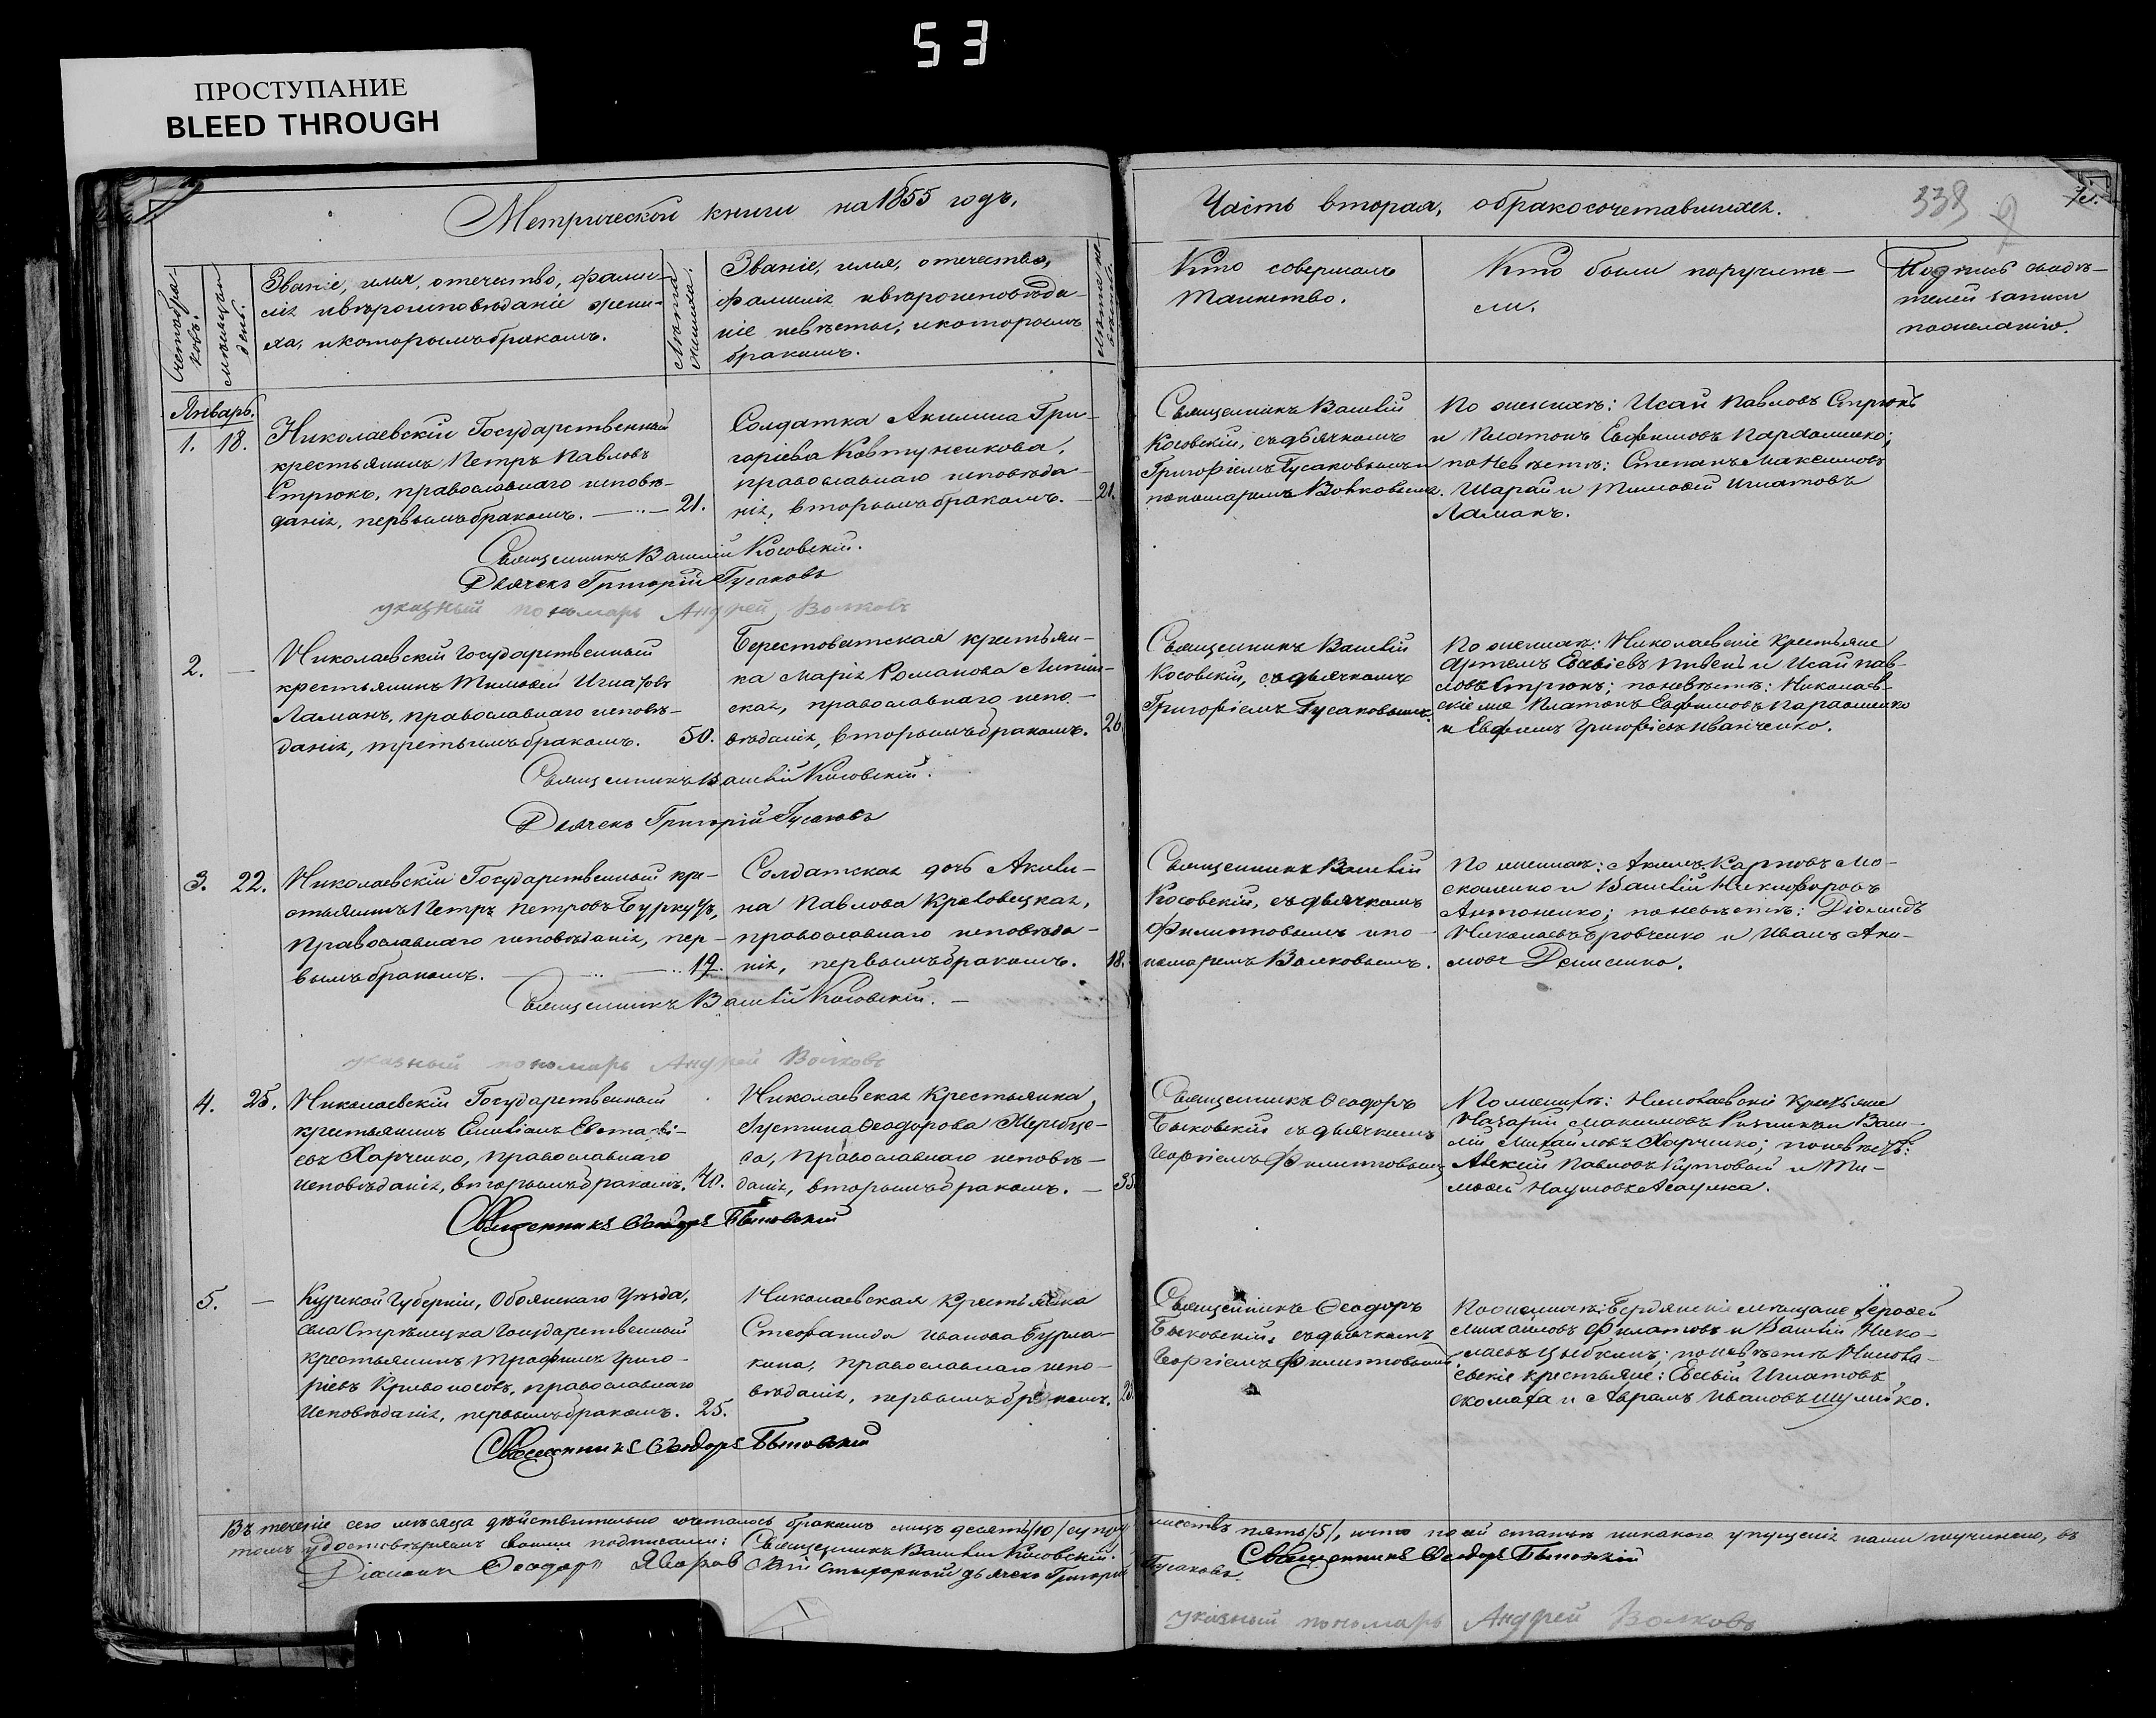 53
ПРОСТУПАНИЕ
BLEED THROUGH
Метрической книги на 1855 годъ,
Часть вторая, о бракосочетавшихся.
338
Счетъ бра-
ковъ.
Мѣсяцъ и
день.
Званіе, имя, отечество, фами-
лія и вѣроисповѣданіе жени-
ха, и которымъ бракомъ.
Лѣта
жениха.
Званіе, имя, отечество,
фамилія и вѣроисповѣда-
ніе невѣсты, и которымъ
бракомъ.
Лѣта не-
вѣсты.
Кто совершалъ
таинство.
Кто были поручите-
ли.
Подпись свидѣ-
телей записи
по желанію.
Январь.
1. 18.
Николаевскій Государственный
крестьянинъ Петръ Павловъ
Стрюкъ, православнаго исповѣ-
данія, первымъ бракомъ. 21.
Солдатка Акилина Гри-
горіева Ковтуненкова,
православнаго исповѣда-
нія, вторымъ бракомъ. 21.
Священникъ Василій
Косовскій, съ дьячкомъ
Григоріемъ Гусаковымъ и
пономаремъ Волковымъ.
По женихѣ: Исай Павловъ Стрюкъ
и Платонъ Евфимовъ Пархоменко;
по невѣстѣ: Степанъ Максимовъ
Шарай и Тимофей Игнатовъ
Ламанъ.
Священникъ Василій Косовскій.
Дьячекъ Григорій Гусаковъ
указный пономарь Андрей Волковъ
2. —
Николаевскій Государственный
крестьянинъ Тимофей Игнатовъ
Ламанъ, православнаго исповѣ-
данія, третьимъ бракомъ. 50.
Берестоватская крестьян-
ка Марія Романова Липин-
ская, православнаго испо-
вѣданія, вторымъ бракомъ. 26.
Священникъ Василій
Косовскій, съ дьячкомъ
Григоріемъ Гусаковымъ.
По женихѣ: Николаевскіе крестьяне
Артемъ Евсѣіевъ Пивень и Исай Пав-
ловъ Стрюкъ; по невѣстѣ: Николаев-
скіе же Платонъ Евфимовъ Пархоменко
и Евфимъ Григоріевъ Иванченко.
Священникъ Василій Косовскій.
Дьячекъ Григорій Гусаковъ
3. 22.
Николаевскій Государственный кре-
стьянинъ Петръ Петровъ Буркутъ,
православнаго исповѣданія, пер-
вымъ бракомъ. 19.
Солдатская дочь Акили-
на Павлова Крековецкая,
православнаго исповѣда-
нія, первымъ бракомъ. 18.
Священникъ Василій
Косовскій, съ дьячкомъ
Филиповымъ и по-
номаремъ Волковымъ.
По женихѣ: Акимъ Карповъ Мо-
скаленко и Василій Никифоровъ
Антоненко; по невѣстѣ: Діомидъ
Николаевъ Бровченко и Иванъ Аки-
мовъ Денисенко.
Священникъ Василій Косовскій.
указный пономарь Андрей Волковъ
4. 25.
Николаевскій Государственный
крестьянинъ Емиліанъ Евстафі-
евъ Харченко, православнаго
исповѣданія, вторымъ бракомъ. 40.
Николаевская крестьянка,
Іустина Ѳеодорова Жеребце-
ва, православнаго исповѣ-
данія, вторымъ бракомъ. 35.
Священникъ Ѳеодоръ
Быковскій съ дьячкомъ
Георгіемъ Филиповымъ
По женихѣ: Николаевскіе крестьяне
Назарій Максимовъ Рѣзникъ и Васи-
лій Михайловъ Харченко; по невѣстѣ:
Алексій Павловъ Кутовый и Ти-
мофей Наумовъ Асаулка.
Священникъ Ѳеодоръ Быковскій
5. —
Курской Губерніи, Обоянскаго Уѣзда,
села Стрѣлецка Государственный
крестьянинъ Трофимъ Григо-
ріевъ Кривоносовъ, православнаго
исповѣданія, первымъ бракомъ. 25.
Николаевская крестьянка
Стефанида Иванова Бурла-
кина, православнаго испо-
вѣданія, первымъ бракомъ. 23.
Священникъ Ѳеодоръ
Быковскій, съ дьячкомъ
Георгіемъ Филиповымъ
По женихѣ: Бердянскіе мѣщане Ерофей
Михайловъ Филатовъ и Василій Нико-
лаевъ Цыбкинъ; по невѣстѣ Никола-
евскіе крестьяне: Евсевій Игнатовъ
Скомаха и Аврамъ Ивановъ Шулейко.
Священникъ Ѳеодоръ Быковскій
Въ теченіе сего мѣсяца дѣйствительно сочеталось бракомъ лицъ десять /10/ супружествъ пять /5/, и что по сей статьѣ никакого упущенія нами не учинено, въ
томъ удостовѣряемъ своими подписами: Священникъ Василій Косовскій. Священникъ Ѳеодоръ Быковскій
Діаконъ Ѳеодоръ Яворовъ стихарный дьячекъ Григорій Гусаковъ.
указный пономарь Андрей Волковъ